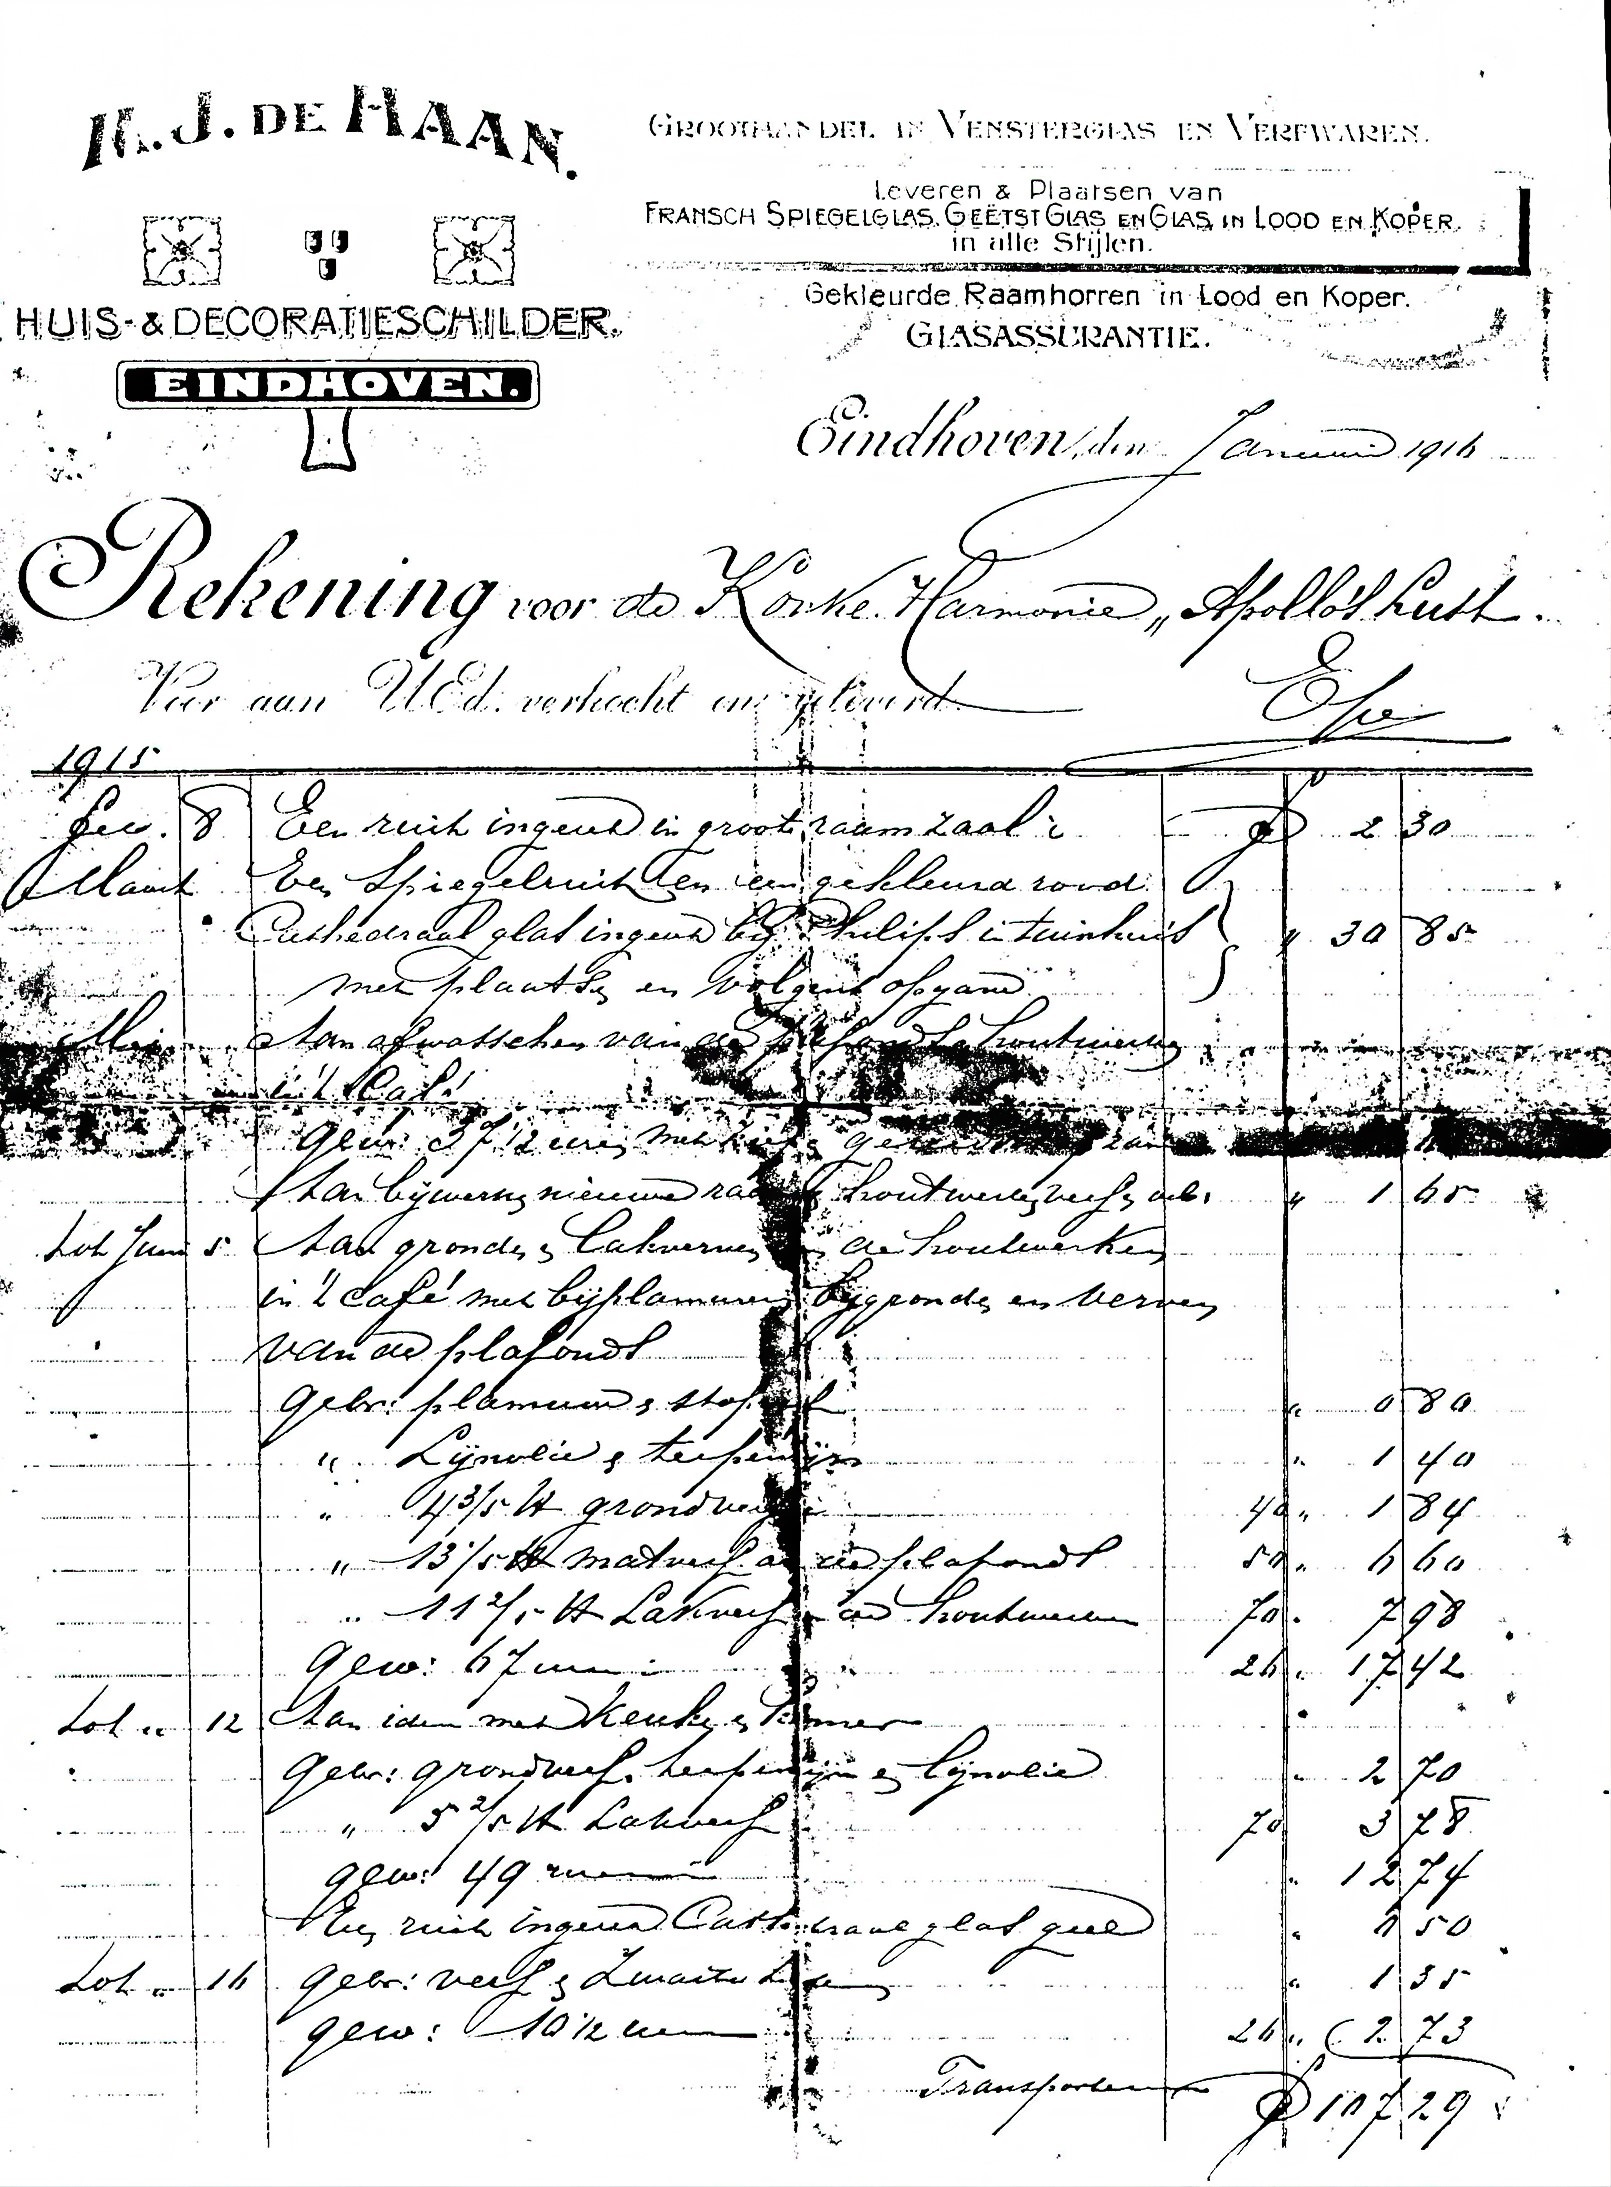 M. J. DE HAAN.
HUIS- & DECORATIESCHILDER.
EINDHOVEN.
GROOTHANDEL IN VENSTERGLAS EN VERFWAREN.
Leveren & Plaatsen van
FRANSCH SPIEGELGLAS. GEËTST GLAS EN GLAS IN LOOD EN KOPER.
in alle Stijlen.
Gekleurde Raamhorren in Lood en Koper.
GLASASSURANTIE.
Eindhoven, den Januari 1916
Rekening voor de Konke. Harmonie „Apollo's Lust.
Voor aan UEd. verkocht en geleverd
1915
Fev. 8 Een ruit ingezet in groot raam zaal ƒ 2 30
Maart Een Spiegelruit en een gekleurd rond
Cathedraal glas ingezet bij Philips in tuinhuis " 30 85
met plaatsen en volgens opgave
Mei Aan afwasschen van de plafonds houtwerk
in 't Café
Gew: 37 1/2 uren met
Aan bijwerken nieuwe houtwerk verf enz. " 1 65
tot Juni 5 Aan gronden & Lakverven de houtwerken
in 't café met bijplamuren bijgronden en verven
van de plafonds
Gebr: plamuur & stopverf " 0 80
" Lijnolie & terpentijn " 1 40
" 4 3/5 ℔ grondverf 40 " 1 84
" 13 1/5 ℔ matverf de plafonds 50 " 6 60
" 11 2/5 ℔ Lakverf de houtwerken 70 " 7 98
Gew: 67 uren 26 " 17 42
tot " 12 Aan idem met Keuken & Kamer
Gebr: grondverf. terpentijn en Lijnolie " 2 70
" 5 2/5 ℔ Lakverf 70 3 78
gew: 49 uren " 12 74
Een ruit ingezet Cathedraal glas geel " 0 50
tot " 16 Gebr: verf & " 1 35
gew: 10 1/2 uren 26 " 2 73
Transporteeren ƒ 107 29